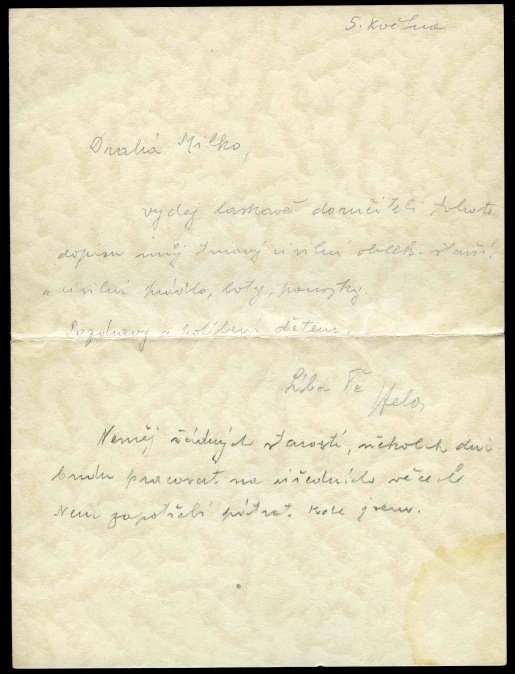 5. Května
Drahá Milko,
vydej laskavě doručiteli tohoto
dopisu můj tmavý civilní oblek - starší.
" civilní prádlo, boty, ponožky.
Pozdravy a políbení dětem.
Líbá Tě
Nemej žádných starostí, několik dní
budu pracovat na úředních věcech
Není zapotřebí pátrat. Kde jsem.